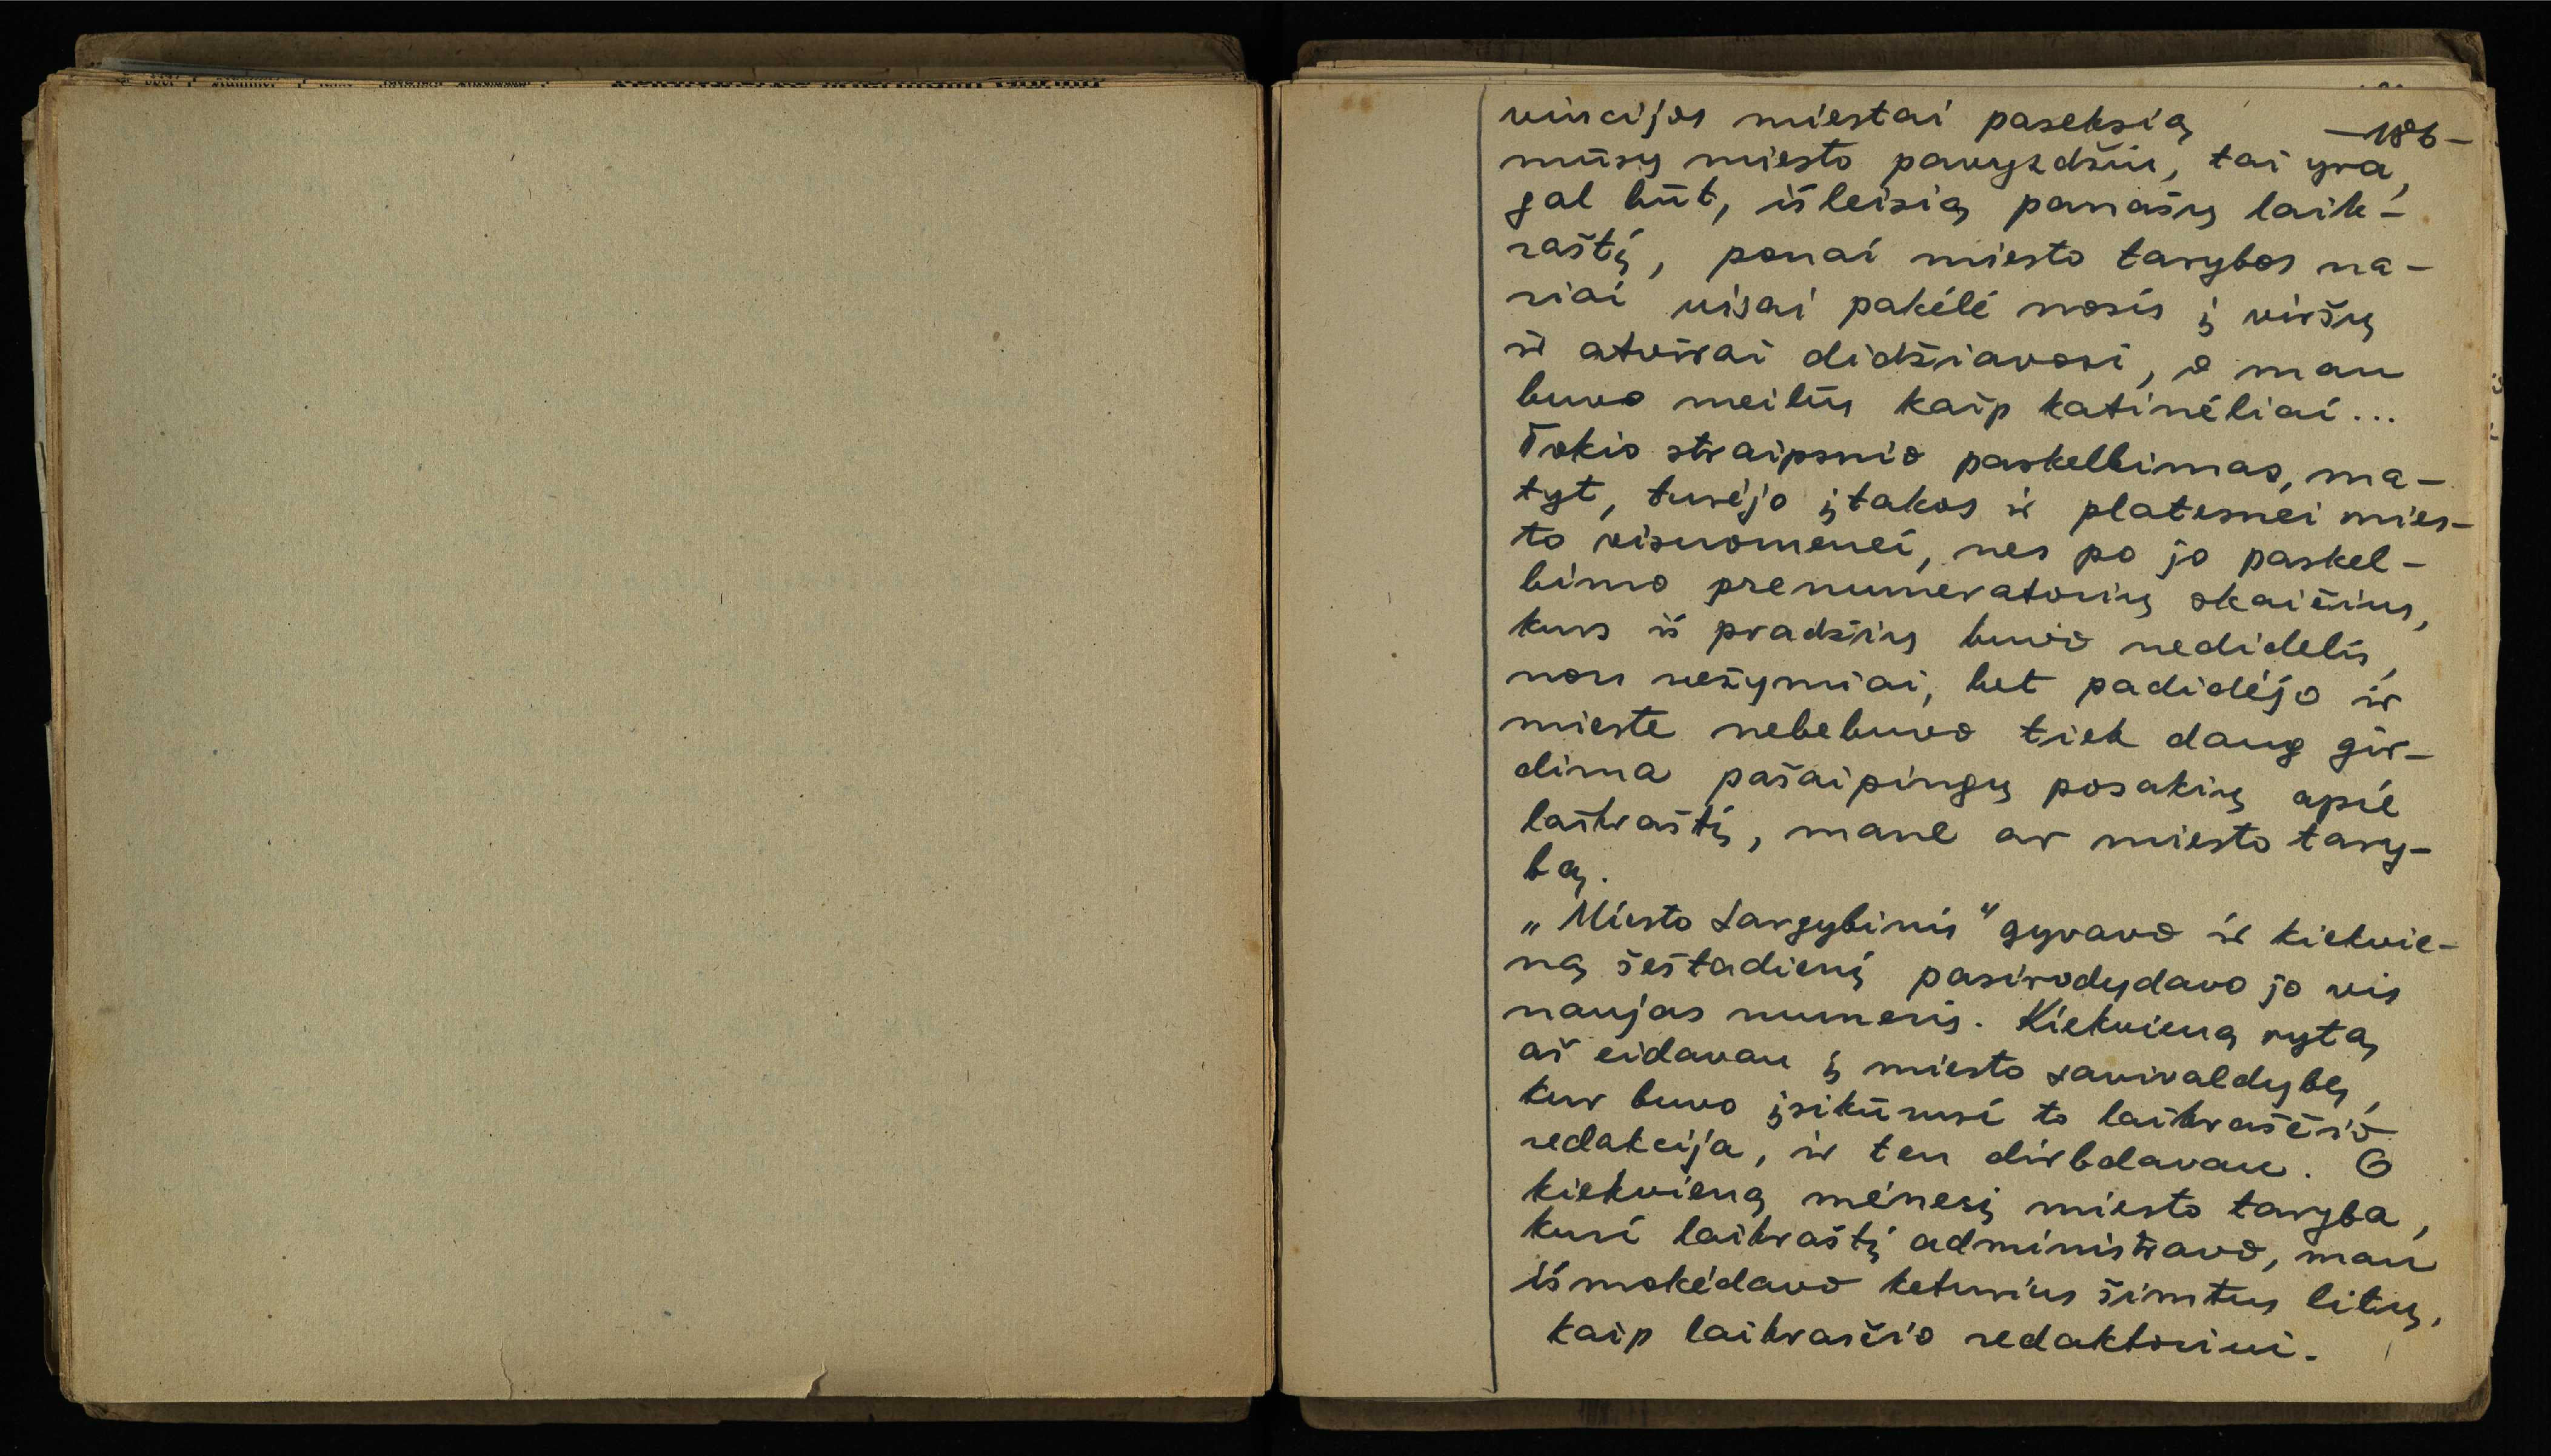 vincijos miestai paseksią
—186—
mūsų miesto pavyzdžiu, tai yra,
gal būt, išleisią panašų laik-
raštį, ponai miesto tarybos na-
riai visai pakėlė nosis į viršų
ir atvirai didžiavosi, o man
buvo meilūs kaip katinėliai...
Tokio straipsnio paskelbimas, ma-
tyt, turėjo įtakos ir platesnei mies-
to visuomenei, nes po jo paskel-
bimo prenumeratorių skaičius,
kurs iš pradžių buvo nedidelis,
nors nežymiai, bet padidėjo ir
mieste nebebuvo tiek daug gir-
dima pašaipingų posakių apie
laikraštį, mane ar miesto tary-
bą.
„Miesto Sargybinis" gyvavo ir kiekvie-
ną šeštadienį pasirodydavo jo vis
naujas numeris. Kiekvieną rytą
aš eidavau į miesto savivaldybę,
kur buvo įsikūrusi to laikraščio
redakcija, ir ten dirbdavau. O
kiekvieną mėnesį miesto taryba,
kuri laikraštį administravo, man
išmokėdavo keturius šimtus litų,
kaip laikraščio redaktoriui.